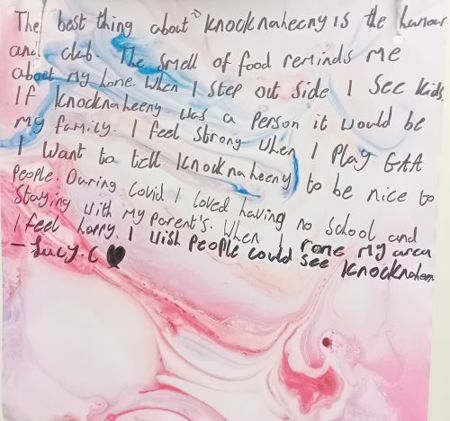 The best thing about knocknaheeny is the humour
and club. The smell of food reminds me
about my home. When I step out side I see kids.
If knocknaheeny was a person it would be
my family. I feel strong when I play GAA
I want to tell knocknaheeny to be nice to
people. During covid I loved having no school and
staying with my parent's. When I rome my area
I feel happy. I wish people could see knocknaheen
- Lucy.C